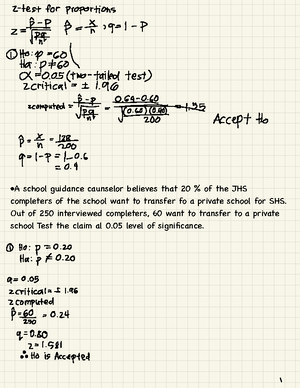 z-test for proportions
z = p̂ - p / √pq/n  p̂ = x/n ; q = 1 - p
① Ho: p = 60
Ha: p ≠ 60
α = 0.05 (two-tailed test)
z critical = ± 1.96
z computed = p̂ - p / √pq/n = 0.64 - 0.60 / √(0.60)(0.40)/200 = 1.15
Accept Ho
p̂ = x/n = 128/200
q = 1 - p = 1 - 0.6
= 0.4
•A school guidance counselor believes that 20 % of the JHS
completers of the school want to transfer fo a private school for SHS.
Out of 250 interviewed completers, 60 want to transfer to a private
school Test the claim al 0.05 level of significance.
① Ho: p = 0.20
Ha: p ≠ 0.20
α = 0.05
z critical = ± 1.96
z computed
p̂ = 60/250 = 0.24
q = 0.80
z = 1.581
∴ Ho is Accepted
1